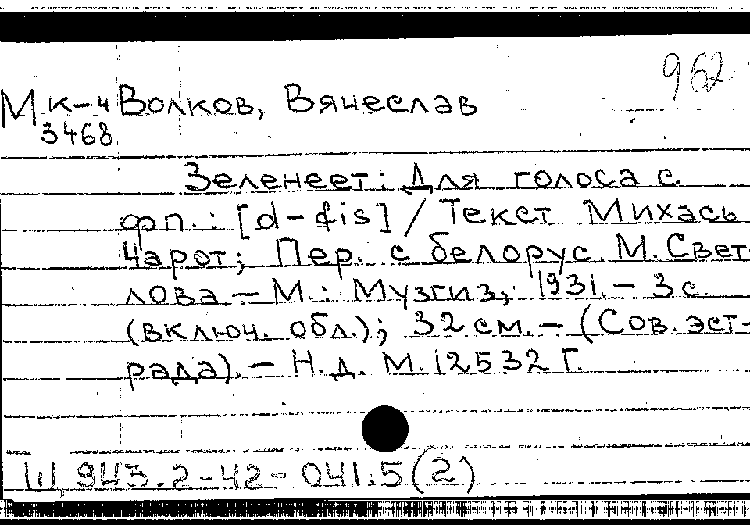 962
Мк-4 Волков, Вячеслав
3468
Зеленеет: Для голоса с
фп.: [d-fis] / Текст Михась
Чарот; Пер. с белорус. М. Свет-
лова - М.: Музгиз, 1931. - 3 с.
(включ. обл.); 32 см. - (Сов. эст-
рада). - Н.д. М. 12532 Г.
943.2-42-041.5(2)